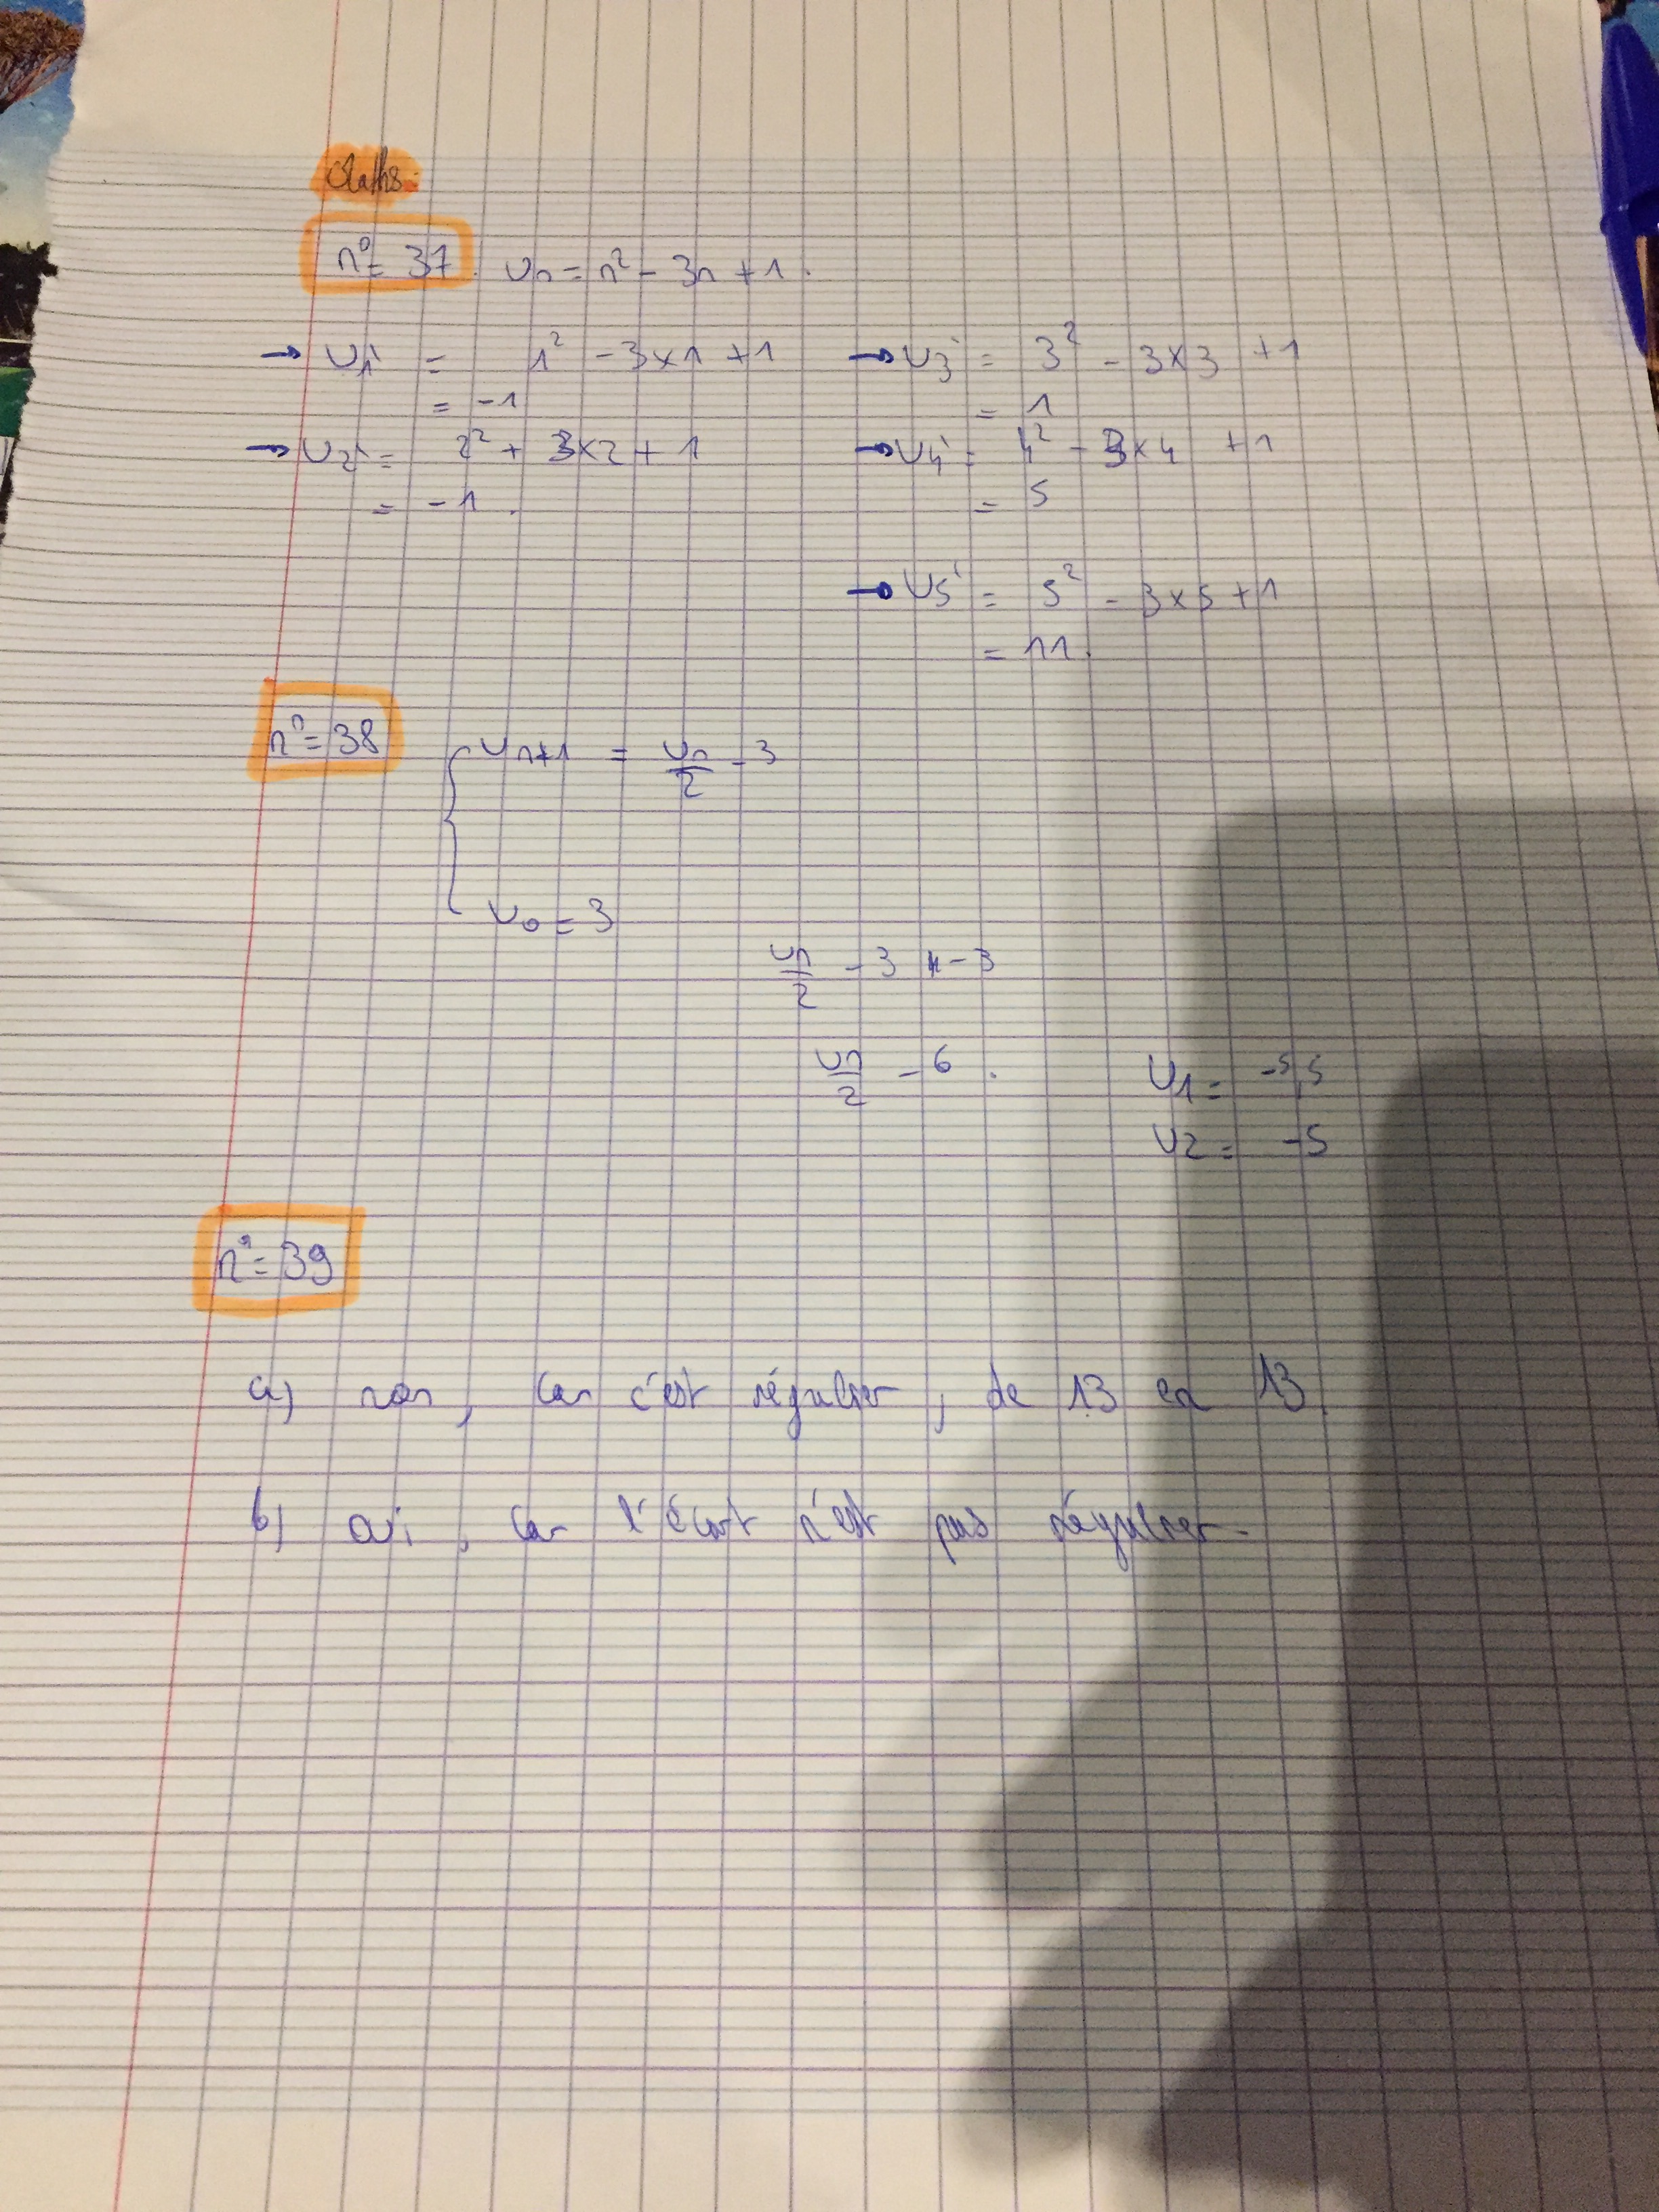 Maths.
n° = 37. Un = n² - 3n + 1.
→ U1 = 1² - 3×1 + 1
= -1
→ U2 = 2² + 3×2 + 1
= -1.
→ U3 = 3² - 3×3 + 1
= 1
→ U4 = 4² - 3×4 + 1
= 5
→ U5 = 5² - 3×5 + 1
= 11.
n° = 38
Un+1 = Un/2 - 3
U0 = 3
Un/2 - 3 - 3
Un/2 - 6.
U1 = -5,5
U2 = -5
n° = 39
a) non, car c'est régulier, de 13 en 13.
b) oui, car l'écart n'est pas régulier.